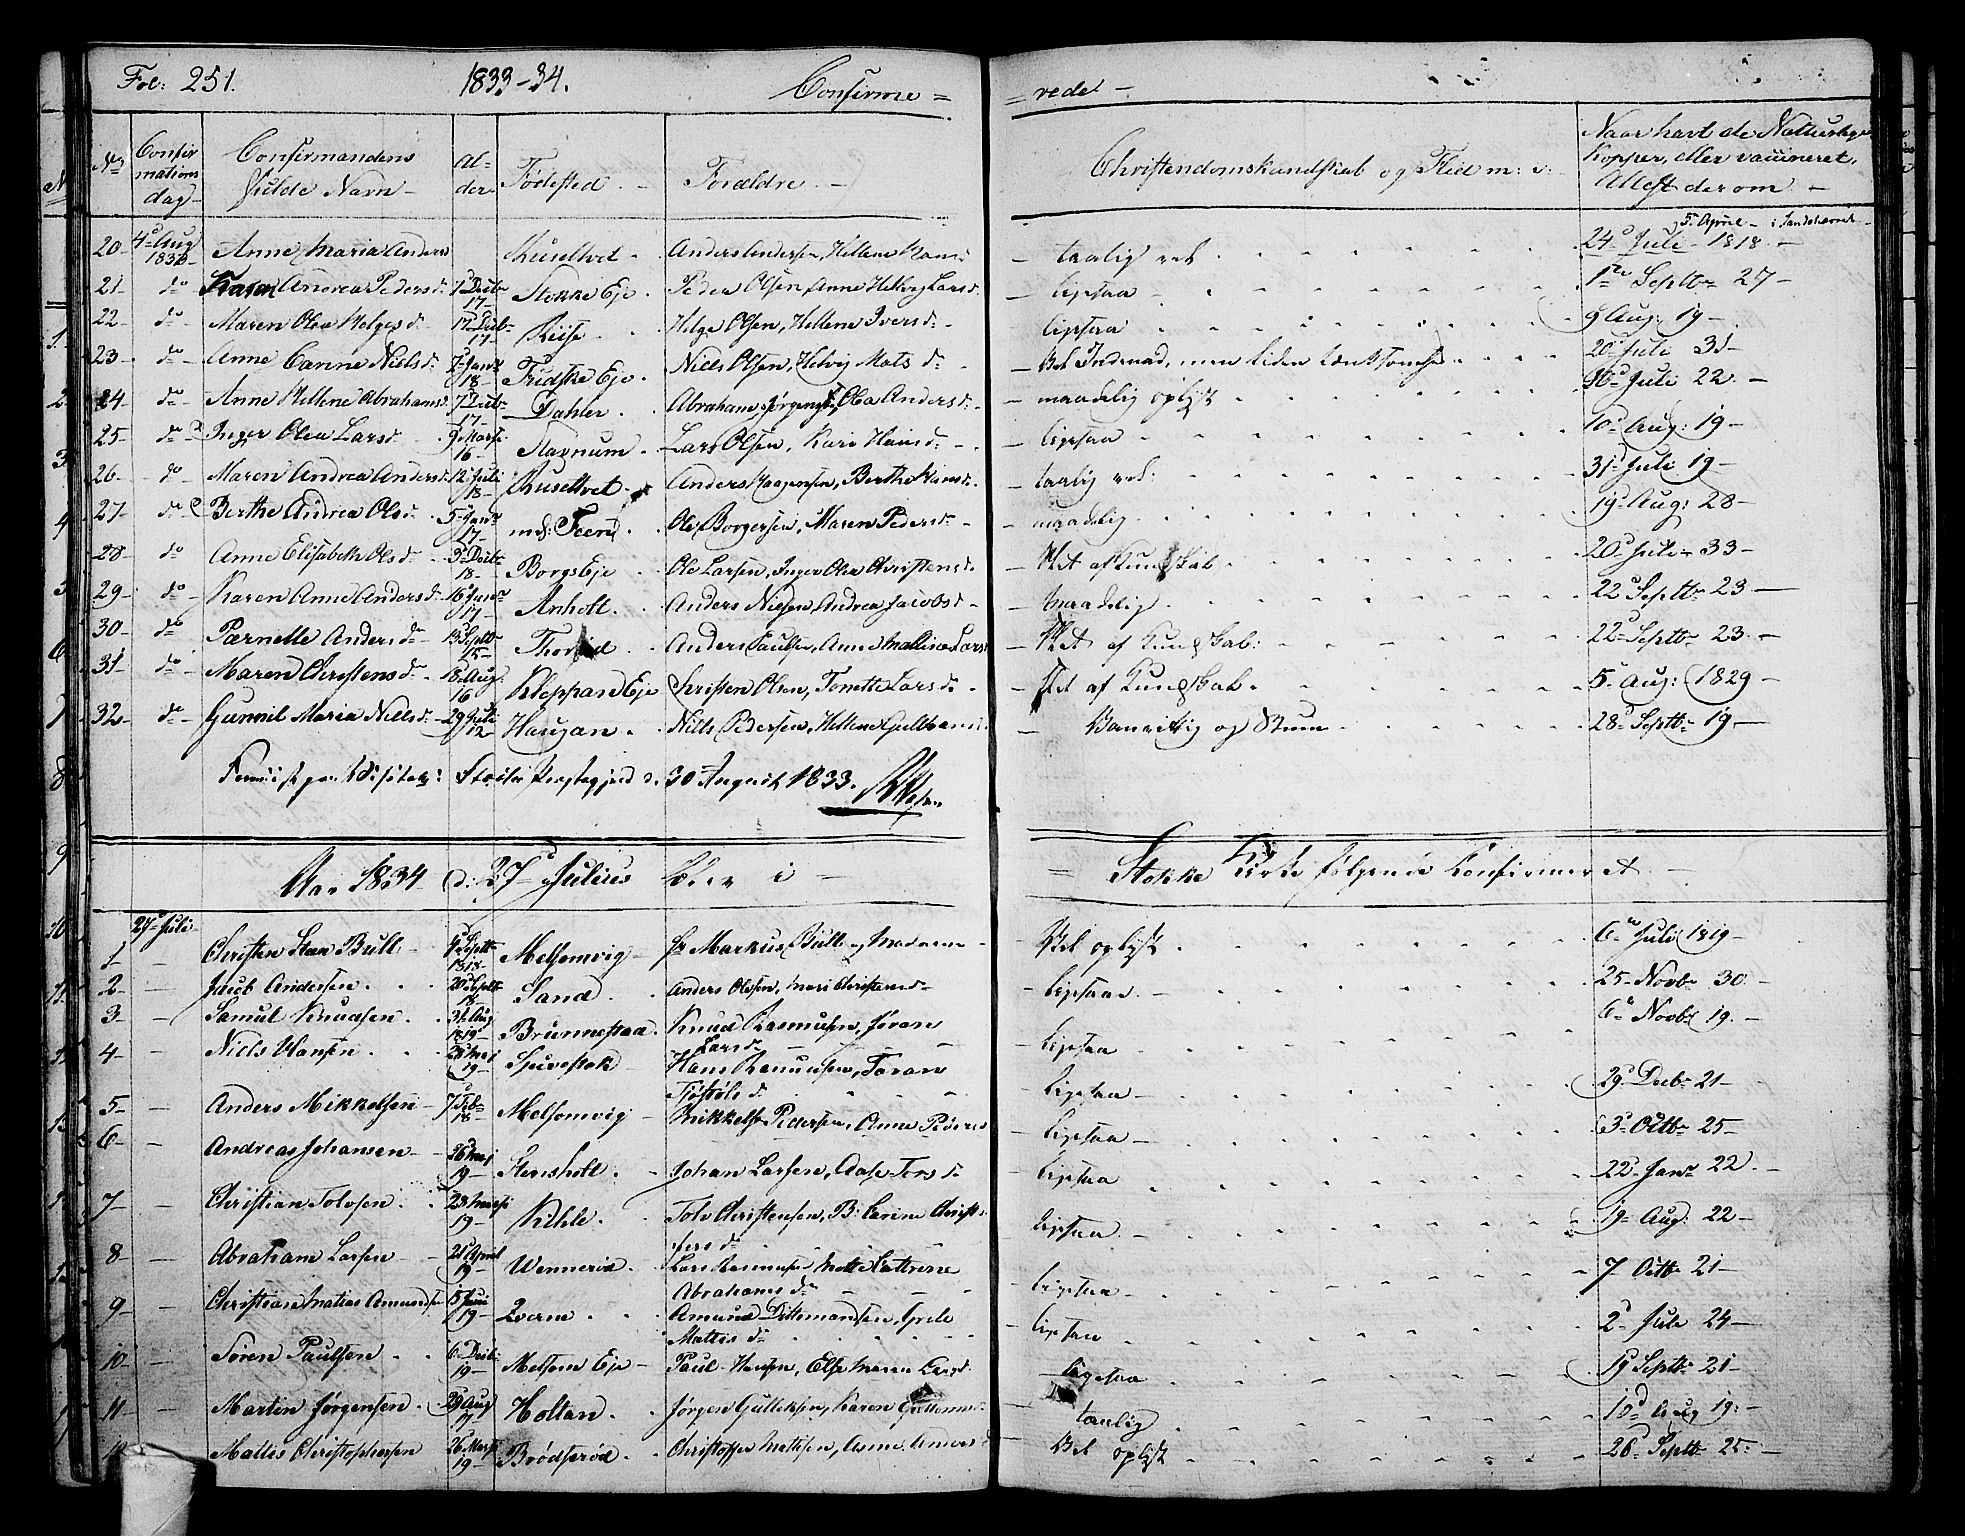 Fol: 251. 1833-34. Confirme = = rede -
No Confirmations dag Confirmandens fulde Navn Alder Fødested Forældre Christendomskundskab og Flid m: v: Naar havt de Naturlige Kopper, eller vaccineret, Attest derom
5. Aprile i Sandeherred
20 4d Aug 1833 Anne Maria Anders Ruseltvet Anders Andersen, Hellene Hans taalig vel 24d Juli 1818
21 do Karen Andrea Peders d. 1d Decbr 17 Stokke Eje Peder Olsen, Anne Helvig Lars d. ligesaa 1ste Septbr 27
22 do Maren Olea Helges d. 17 Decbr 17 Riise Helge Olsen, Hellene Ivers d. ligesaa 9 Aug: 19
23 do Anne Carine Niels d. 7 Janr 18 Fridske Eje Niels Olsen, Helvig Mats d. 20 Juli 31
24 do Anne Hellene Abrahams d. 7 Decbr 17 Dahler Abraham Jørgensen, Olea Anders d. maadelig oplyst 10d Juli 22
25 do Inger Olea Lars d. 9 Marts 16 Stavnum Lars Olsen, Kari Hans d. ligesaa 10d Aug: 19
26 do Maren Andrea Anders d. 12 Juli 18 Ruseltvet Anders Haagensen, Berthe Hans d. taalig vel: 31d Juli 19
27 do Berthe Andrea Ols d. 5 Janr 17 Feen Ole Borgersen, Maren Peders d. maadelig 19d Aug: 28
28 do Anne Elisabeth Ols d. 3d Decbr 18 Borgs Eje Ole Larsen, Inger Olea Christens d. Slet af Kundskab 20d Juli 33
29 do Karen Anne Anders d. 16 Janr 17 Anholt Anders Nielsen, Andrea Jacobs d. maadelig 22d Septbr 23
30 do Pernelle Anders d. 13 Septbr 15 Anders Paulsen, Anne Mallene Lars Slet af Kundskab: 22d Septbr 23
31 do Maren Christens d. 18 Aug: 16 Kleppan Eje Christen Olsen, Tonette Lars d. Slet af Kundskab 5d Aug: 1829
32 do Gunnil Maria Niels d. 29 Juli 12 Haugan Niels Pedersen, Hellene Vanvittig og Stum 28d Septbr 19
Stokke Præstegjeld d. 30 August 1833.
Aar 1834 d: 27d Julius blev i Stokke Kirke følgende Confirmeret
1 27d Juli Christen Steen Bull Septbr 1818 Melsomvig Hr Markus Bull og Madame Vel oplyst 6te Juli 1819
2 Jacob Andersen 20d Septbr 18 Sand Anders Olsen, Mari Christens d. ligesaa 25 Novbr 30
3 Samuel Knudsen 31 Aug 1819 Brunnestad Knud Rasmusen, Jøran Lars d. ligesaa 6te Novbr 19
4 Niels Hansen 28 Maj 19 Spirestok Hans Rasmusen, Toran Tjøstøls d. ligesaa 29d Decbr 21
5 Anders Mikkelsen 7 Feb 18 Melsomvig Mikkel Pedersen, Anne Peders ligesaa 3d Octbr 25
6 Andreas Johansen 26 Maj 19 Stensholt Johan Larsen, Aase Tors d. ligesaa 22d Janr 22
7 Christian Tolvsen 23 Marts 19 Kihle Tolv Christensen, B: Carine Christoffers d. ligesaa 19d Aug: 22
8 Abraham Larsen 21 April 19 Wennerød Lars Rasmusen Mette Cathrine Abrahams d. ligesaa 7 Octbr 21
9 Christian Matias Amundsen 15 Juni 19 Qverne Amund Dittmandsen, Grete Mattis d. ligesaa 2d Juli 24
10 Søren Paulsen 6 Decbr 19 Melsom Eje Paul Hansen, Else Maria Lars d. ligesaa 19 Septbr 21
11 Martin Jørgensen 29 Aug 17 Holtan Jørgen Gulliksen, Karen taalig 10d Aug 19:
12 Mattis Christophersen 26 Marts 19 Brødserød Christoffer Matisen, Anne Anders d Vel oplyst 26d Septbr 25: